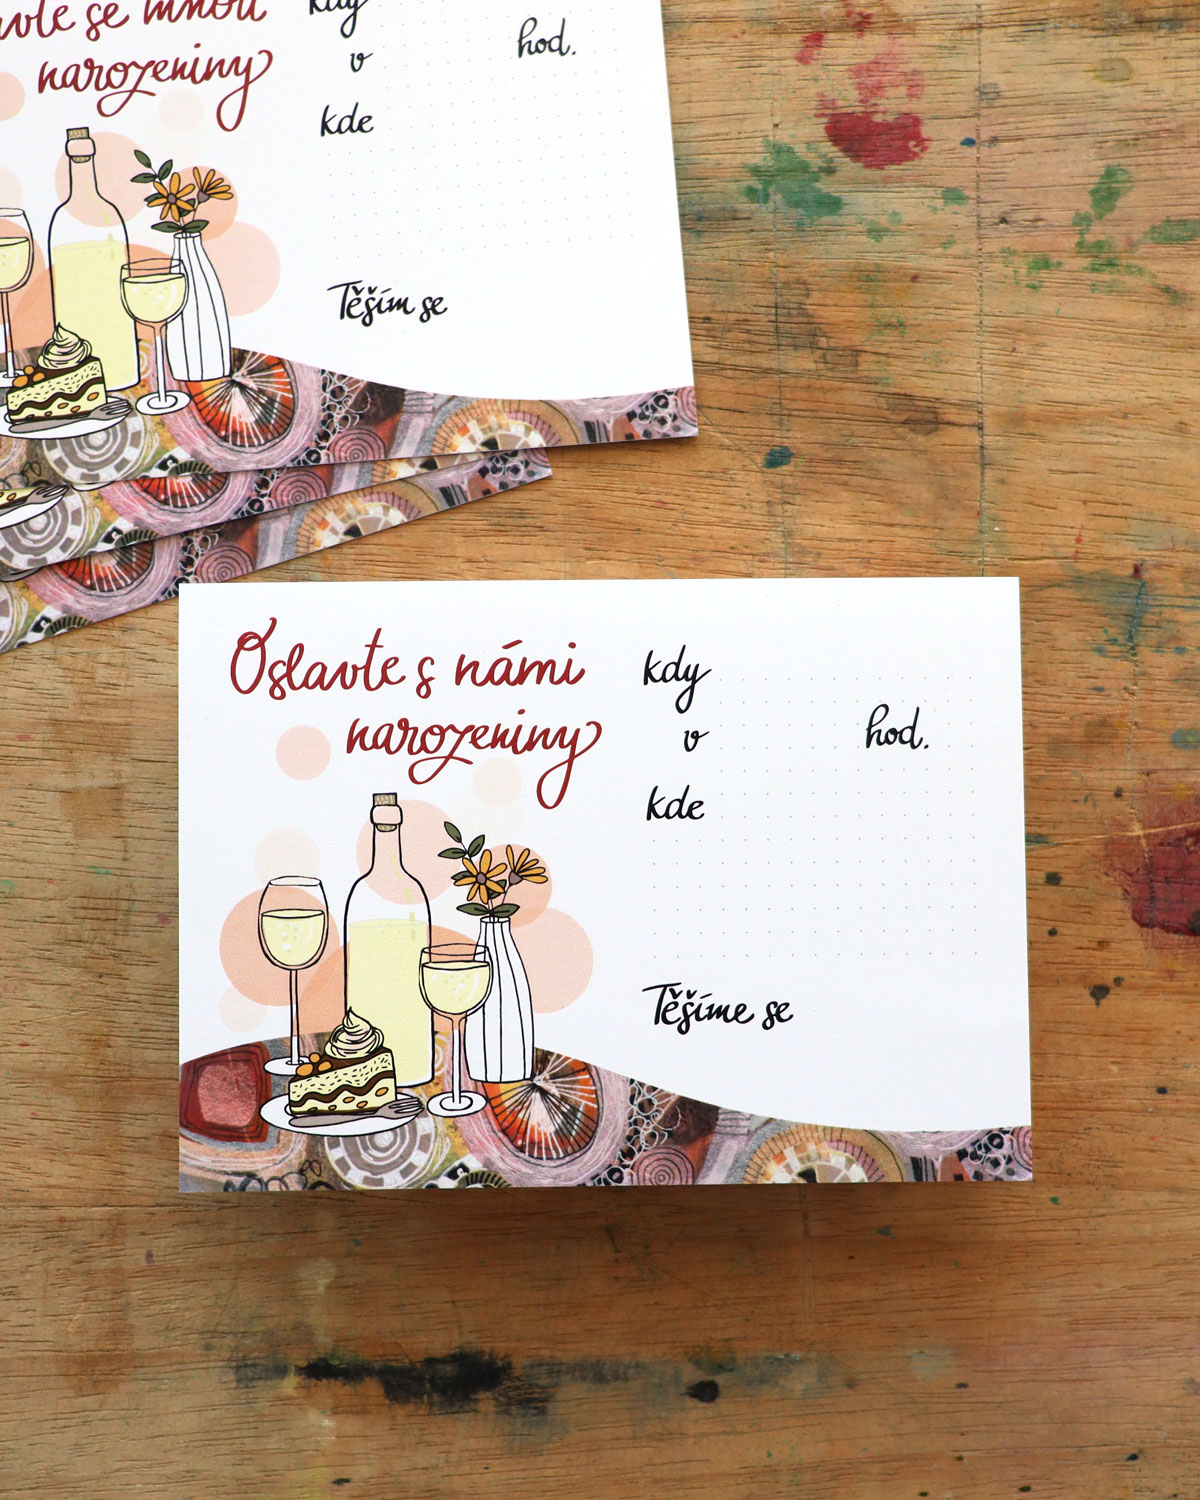 se mnou
narozeniny
kdy
v hod.
kde
Těším se
Oslavte s námi
narozeniny
kdy
v hod.
kde
Těšíme se